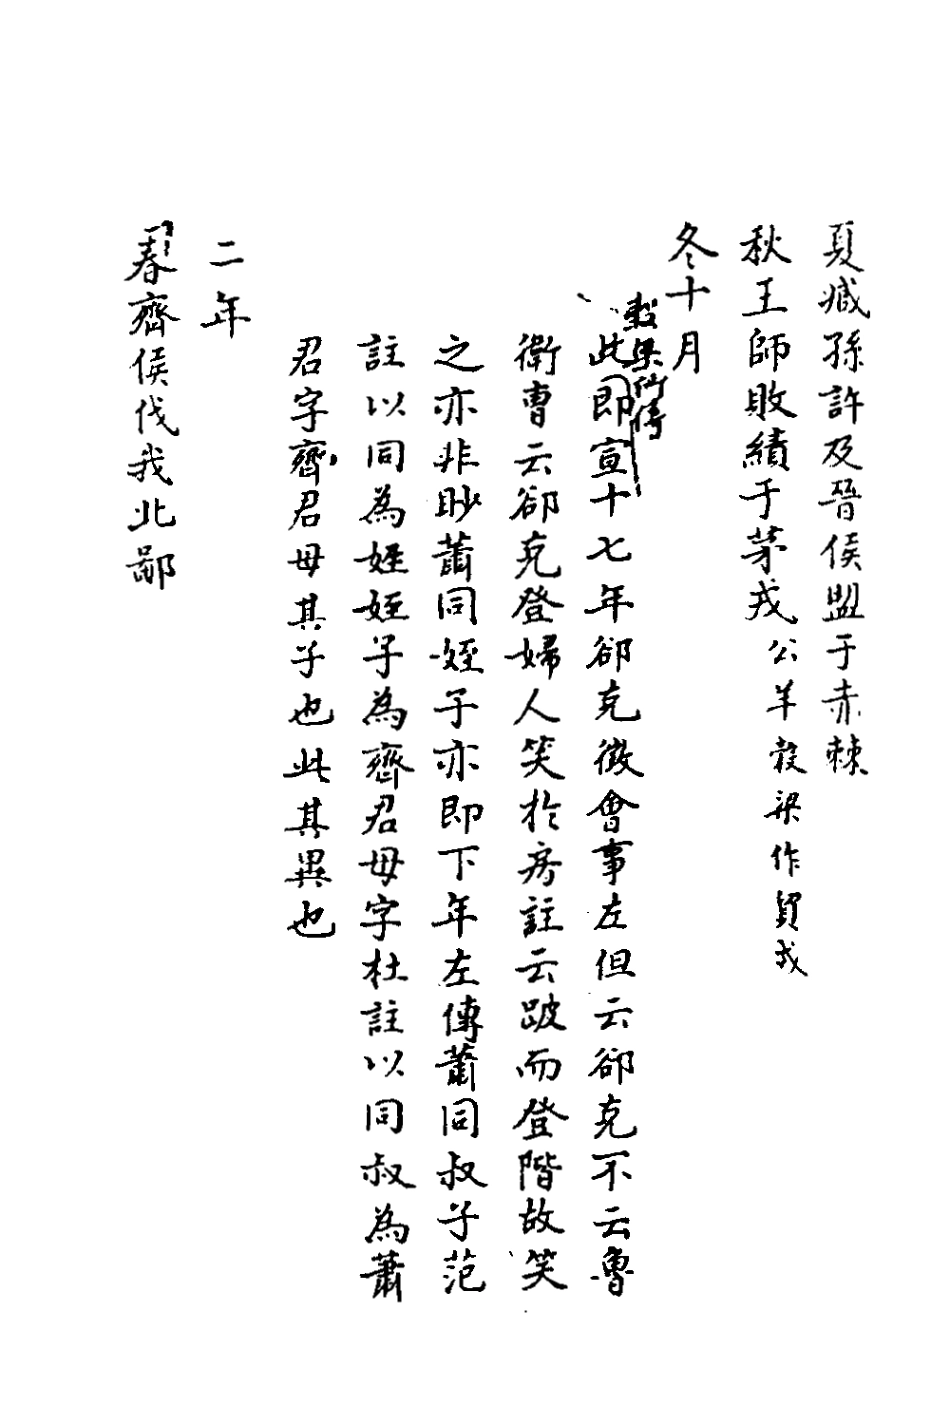 夏臧孫許及晉侯盟于赤棘
秋王師敗績于茅戎公羊榖梁作貿戎
冬十月
榖梁佡傳
此即宣十七年郤克徵會事左但云郤克不云魯
衛曹云郤克登婦人笑於房註云跛而登階故笑
之亦非眇蕭同姪子亦即下年左傳蕭同叔子范
註以同為姪姪子為齊君母字杜註以同叔為蕭
君字齊君母其子也此其異也
二年
春齊侯伐我北鄙